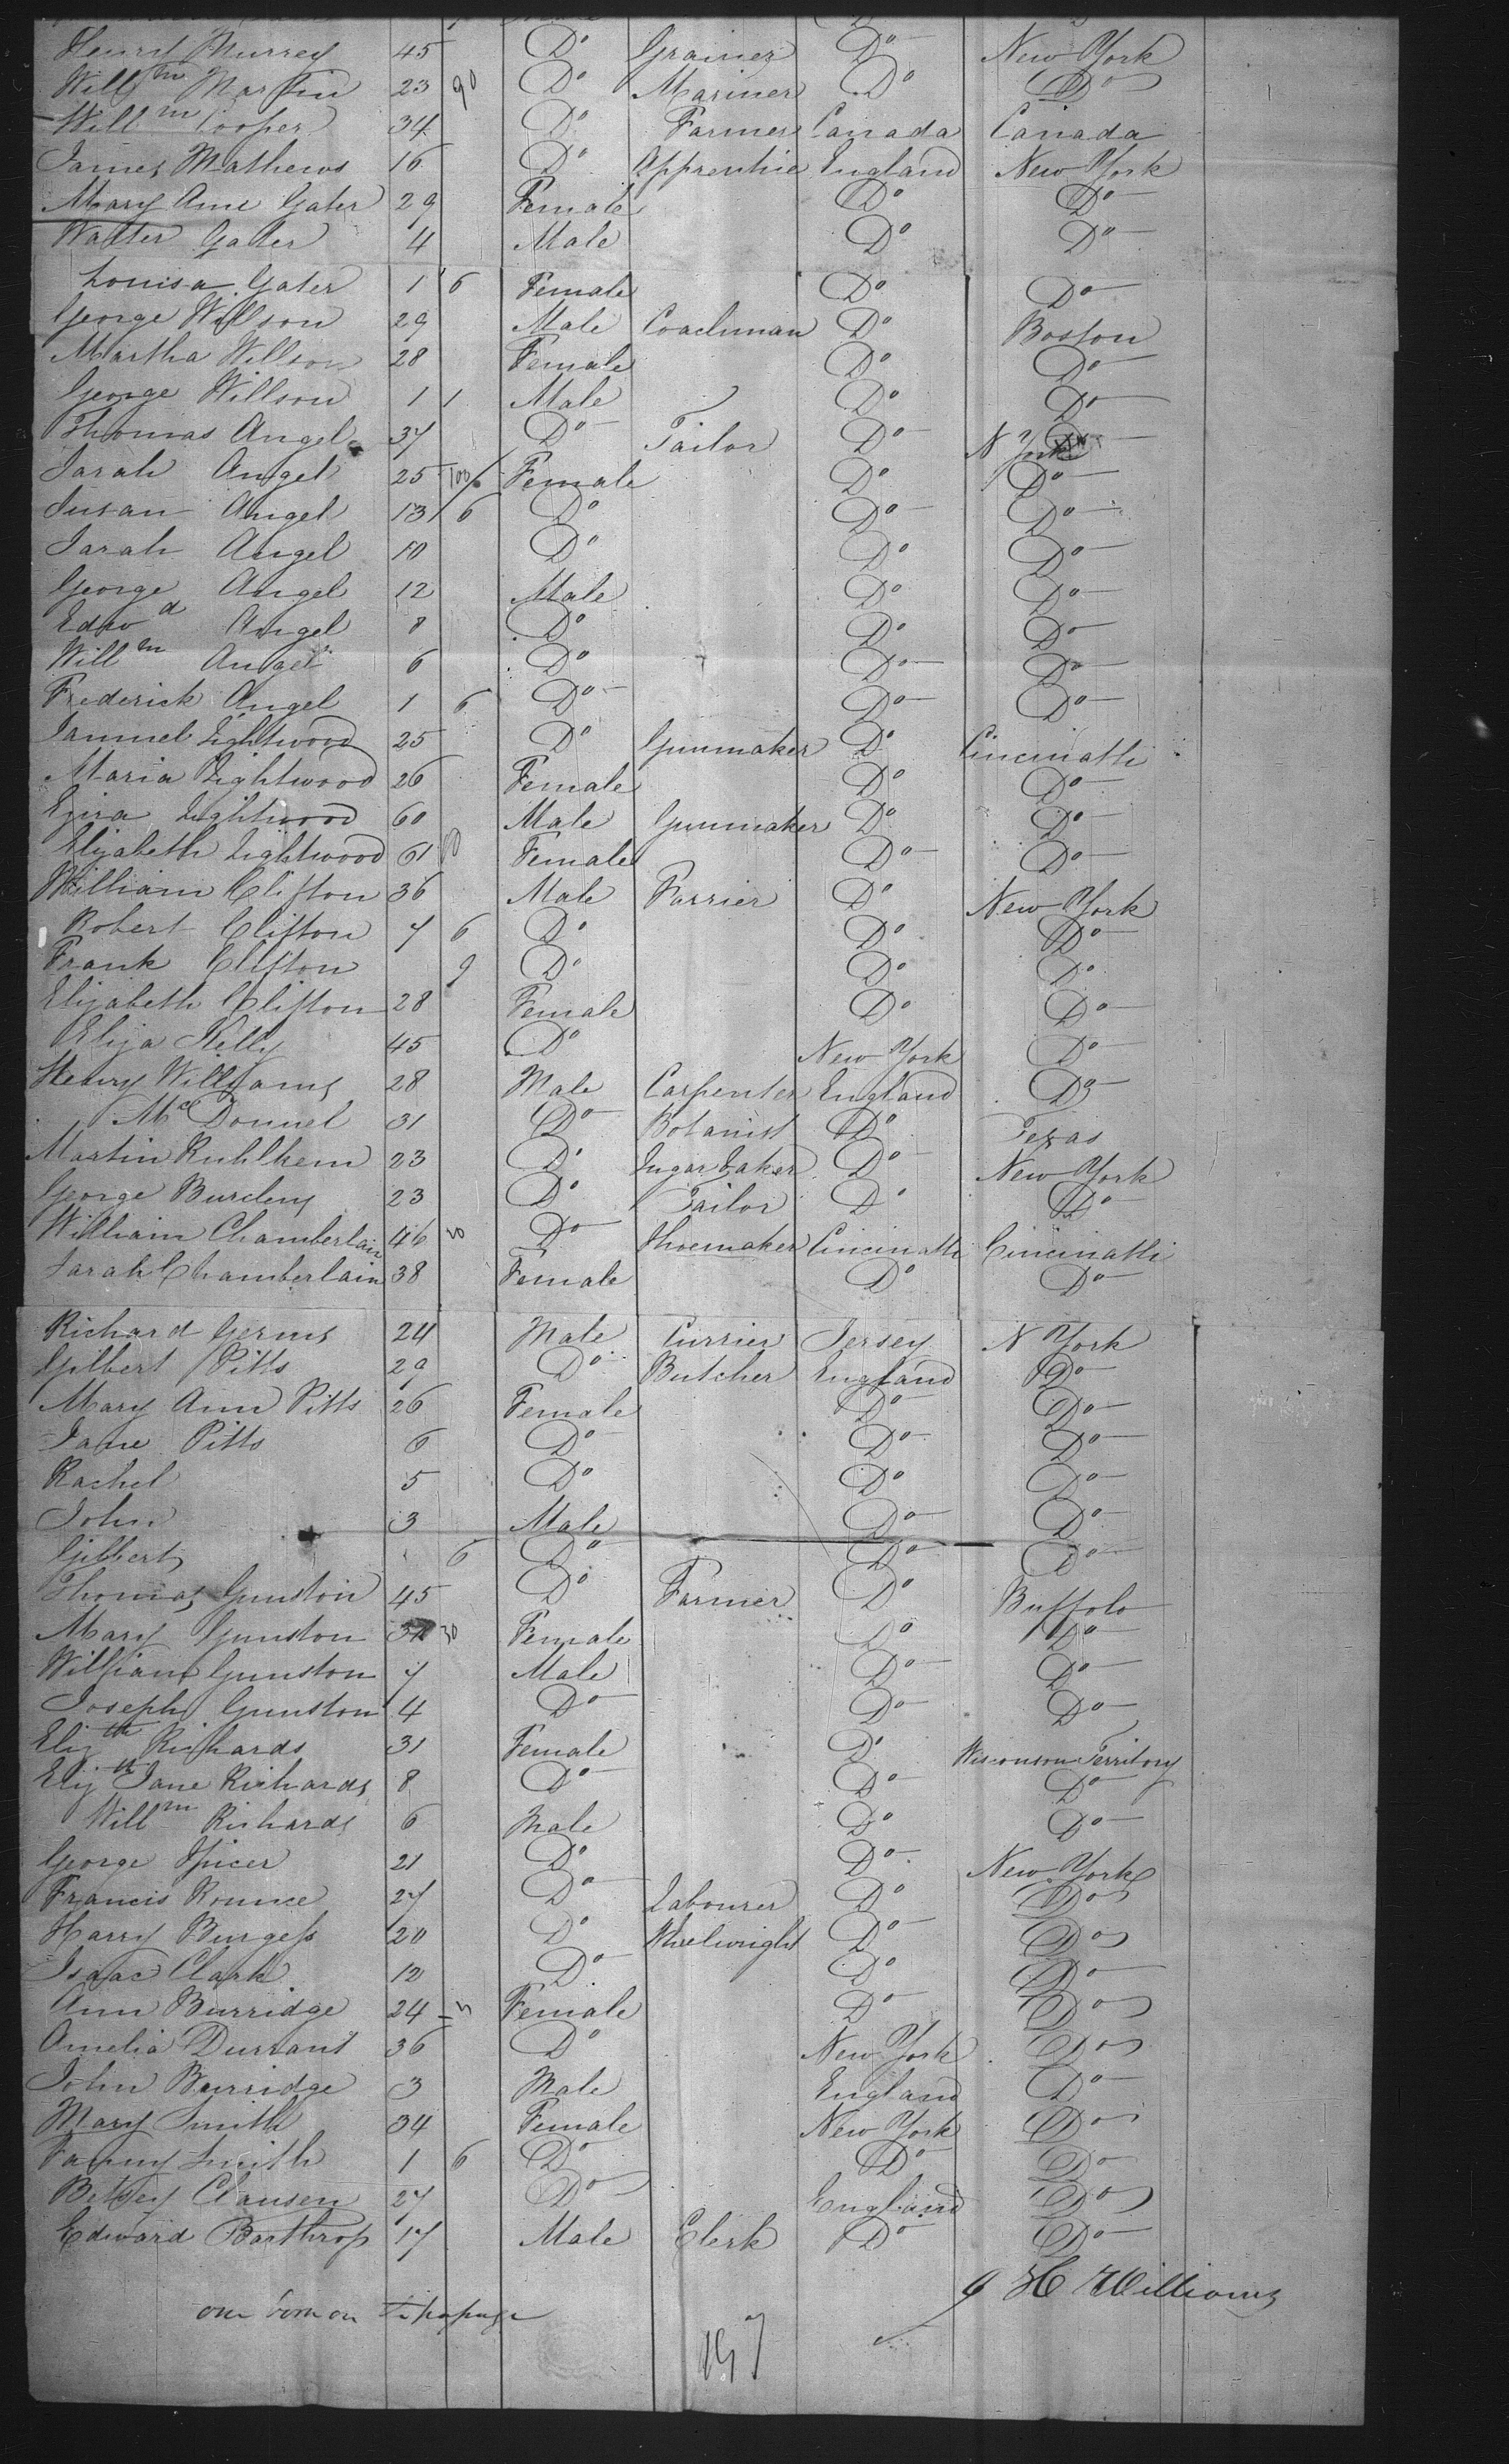 Henry Murrey 45 Do Grainer Do New York
Willm Martin 23 90 Do Mariner Do Do
Willm Cooper 34 Do Farmer Canada Canada
James Mathews 16 Do Apprentice England New York
Mary Ann Gater 29 Female Do Do
Walter Gater 4 Male Do Do
Louisa Gater 1 6 Female Do Do
George Willson 29 Male Coachman Do Boston
Martha Willson 28 Female Do Do
George Willson 1 1 Male Do Do
Thomas Angel 37 Do Tailor Do N York
Sarah Angel 25 100 Female Do Do
Susan Angel 13 6 Do Do Do
Sarah Angel 10 Do Do Do
George Angel 12 Male Do Do
Edwd Angel 8 Do Do Do
Willm Angel 6 Do Do Do
Frederick Angel 1 6 Do Do Do
Sammuel Lightwood 25 Do Gunmaker Do Cincinatti
Maria Lightwood 26 Female Do Do
Ezira Lightwood 60 Male Gunmaker Do Do
Elizabeth Lightwood 61 Female Do Do
William Clifton 36 Male Farrier Do New York
Robert Clifton 7 6 Do Do Do
Frank Clifton 9 Do Do Do
Elizabeth Clifton 28 Female Do Do
Eliza Kelly 45 Do New York Do
Henry Williams 28 Male Carpenter England Do
Mc Donnel 31 Do Botanist Do Texas
Martin Kuhlkem 23 Do Sugar baker Do New York
George Burdeny 23 Do Tailor Do Do
William Chamberlain 46 50 Do Shoemaker Cincinatti Cincinatti
Sarah Chamberlain 38 Female Do Do
Richard Germs 24 Male Currier Jersey N York
Gilbert Pitts 29 Do Butcher England Do
Mary Ann Pitts 26 Female Do Do
Jane Pitts 6 Do Do Do
Rachel 5 Do Do Do
John 3 Male Do Do
Gilbert 6 Do Do Do
Thomas Gunston 45 Do Farmer Do Buffolo
Mary Gunston 30 Female Do Do
William Gunston 7 Male Do Do
Joseph Gunston 4 Do Do Do
Elizth Richards 31 Female Do Wisconson Territory
Elizth Jane Richards 8 Do Do Do
Willm Richards 6 Male Do Do
George Spicer 21 Do Do New York
Francis Rounce 27 Do Labourer Do Do
Harry Burgess 20 Do Whelwright Do Do
Isaac Clark 12 Do Do Do
Ann Burridge 24 Female Do Do
Amelia Durrant 36 Do New York Do
John Burridge 3 Male England Do
Mary Smith 34 Female New York Do
Fanny Smith 1 6 Do Do Do
Betsey Clausen 27 Do England Do
Edward Barthrop 17 Male Clerk Do Do
J H Williams
one born on